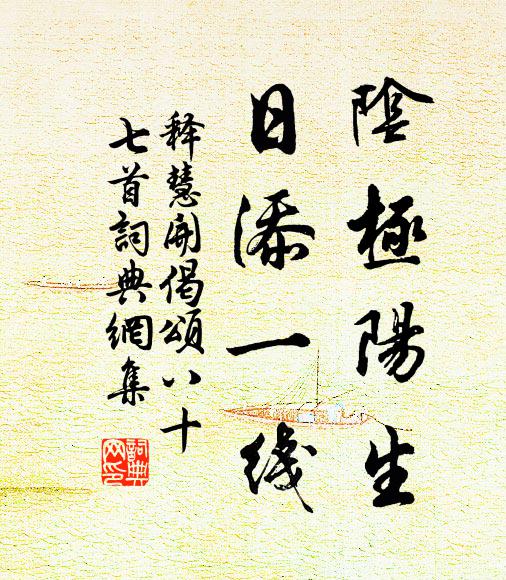 陰極陽生
日添一线
释慧開偈頌八十
七首詞典網集
詞典网印